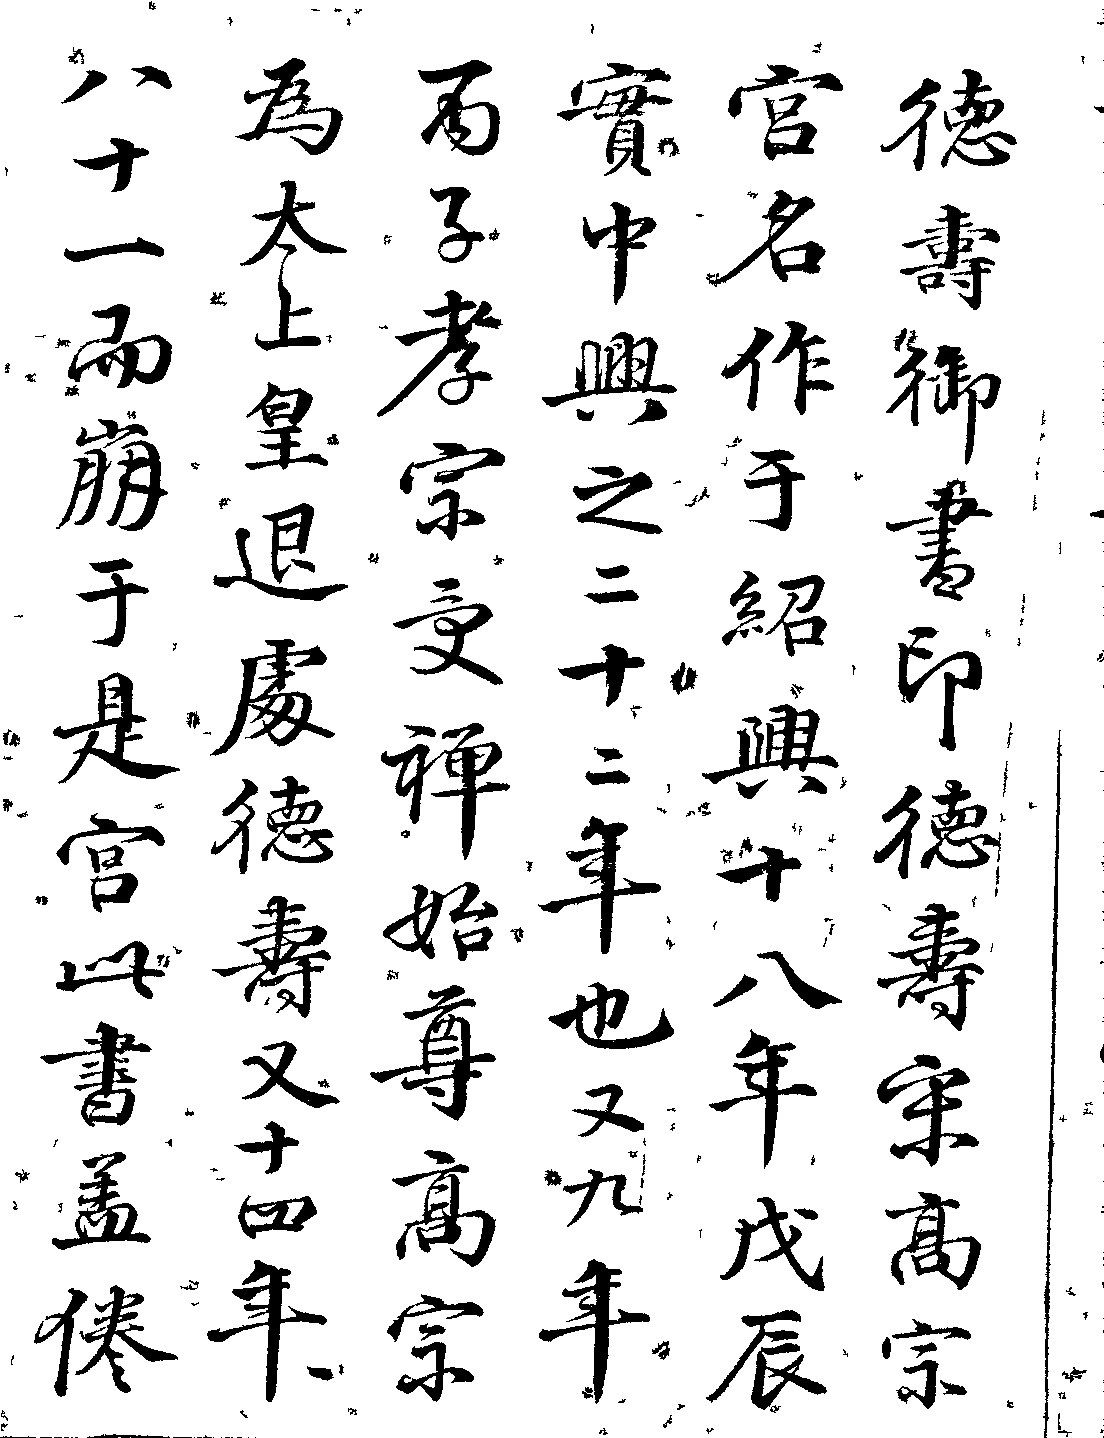 德壽御書印德壽宋高宗
宮名作于紹興十八年戊辰
實中興之二十二年也又九年
丙子孝宗受禅始尊高宗
為太上皇退處德壽又十四年
八十一而崩于是宮此書盖倦